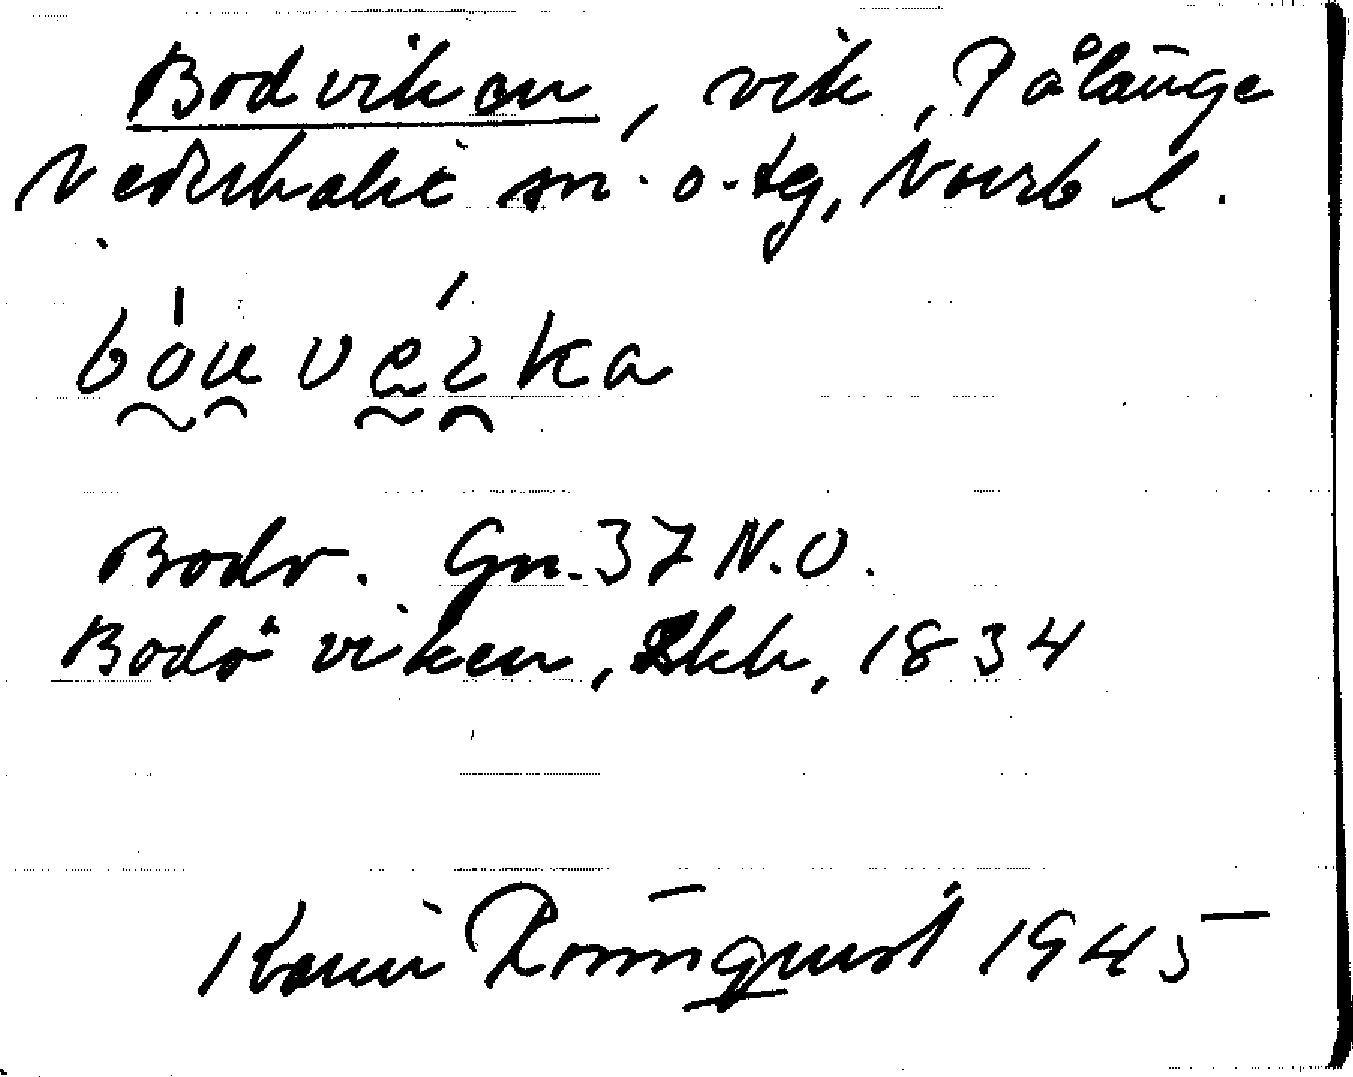 Bodviken, vik, Pålänge
Nederkalix sn. o. tg, Norrb l.
Bodv. Gn. 37 N.O.
Bodöviken, Skk, 1834
Karin Rönnquist 1945